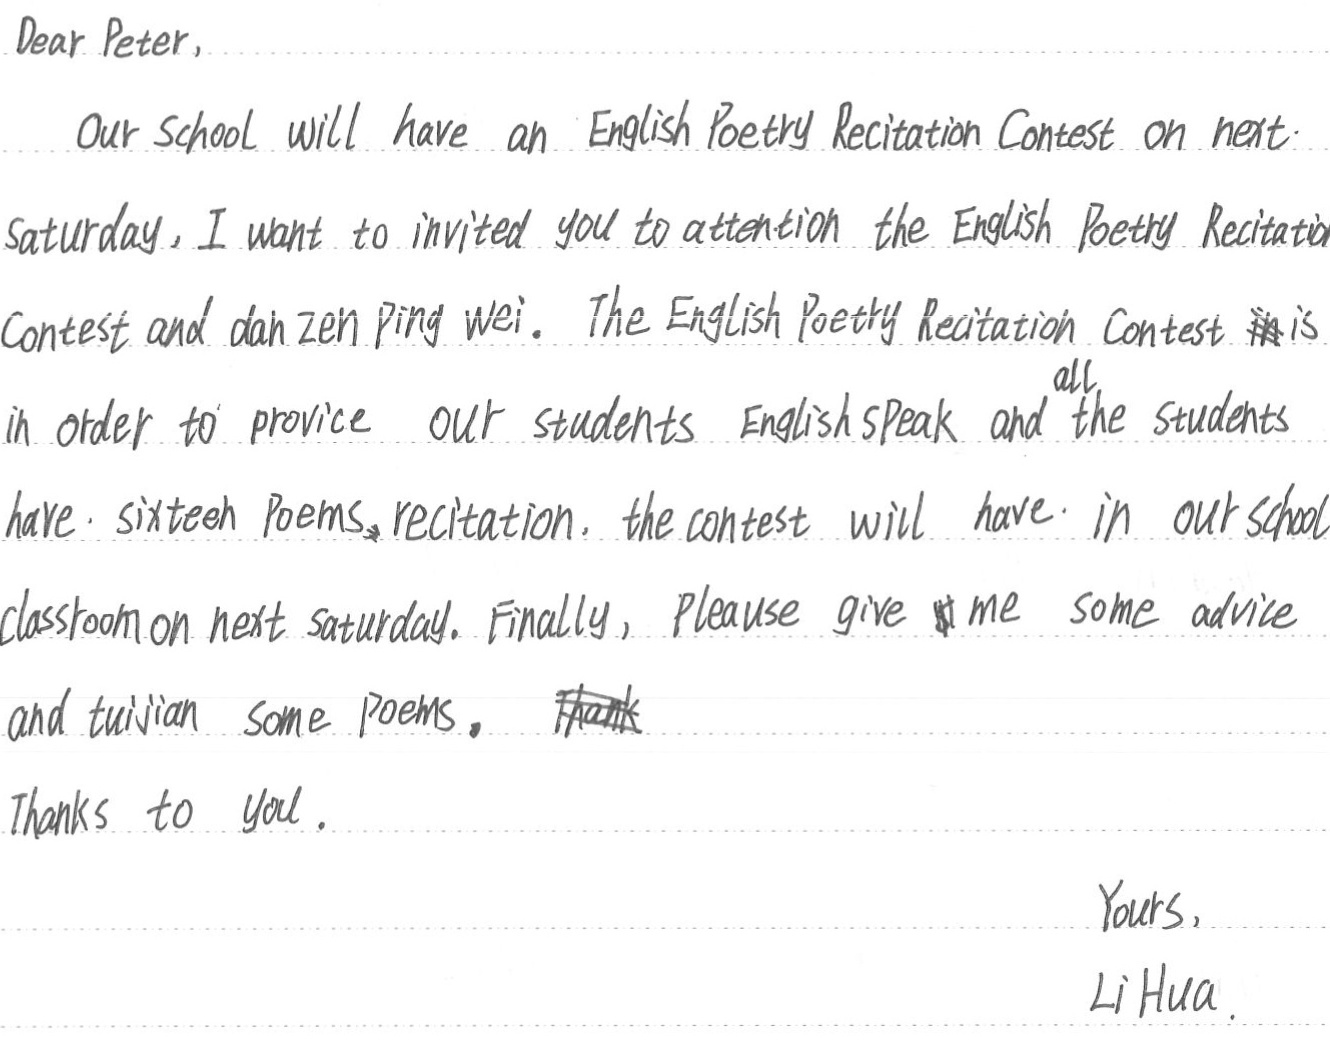 Dear Peter,
Our School will have an English Poetry Recitation Contest on next
Saturday, I want to invited you to attention the English Poetry Recitation
Contest and dan zen Ping wei. The English Poetry Recitation Contest is
all
in order to provice our students English speak and the students
have sixteen Poems, recitation. the contest will have in our school
classroom on next Saturday. Finally, Pleause give me some advice
and tuijian some Poems.
Thanks to you.
Yours,
Li Hua.